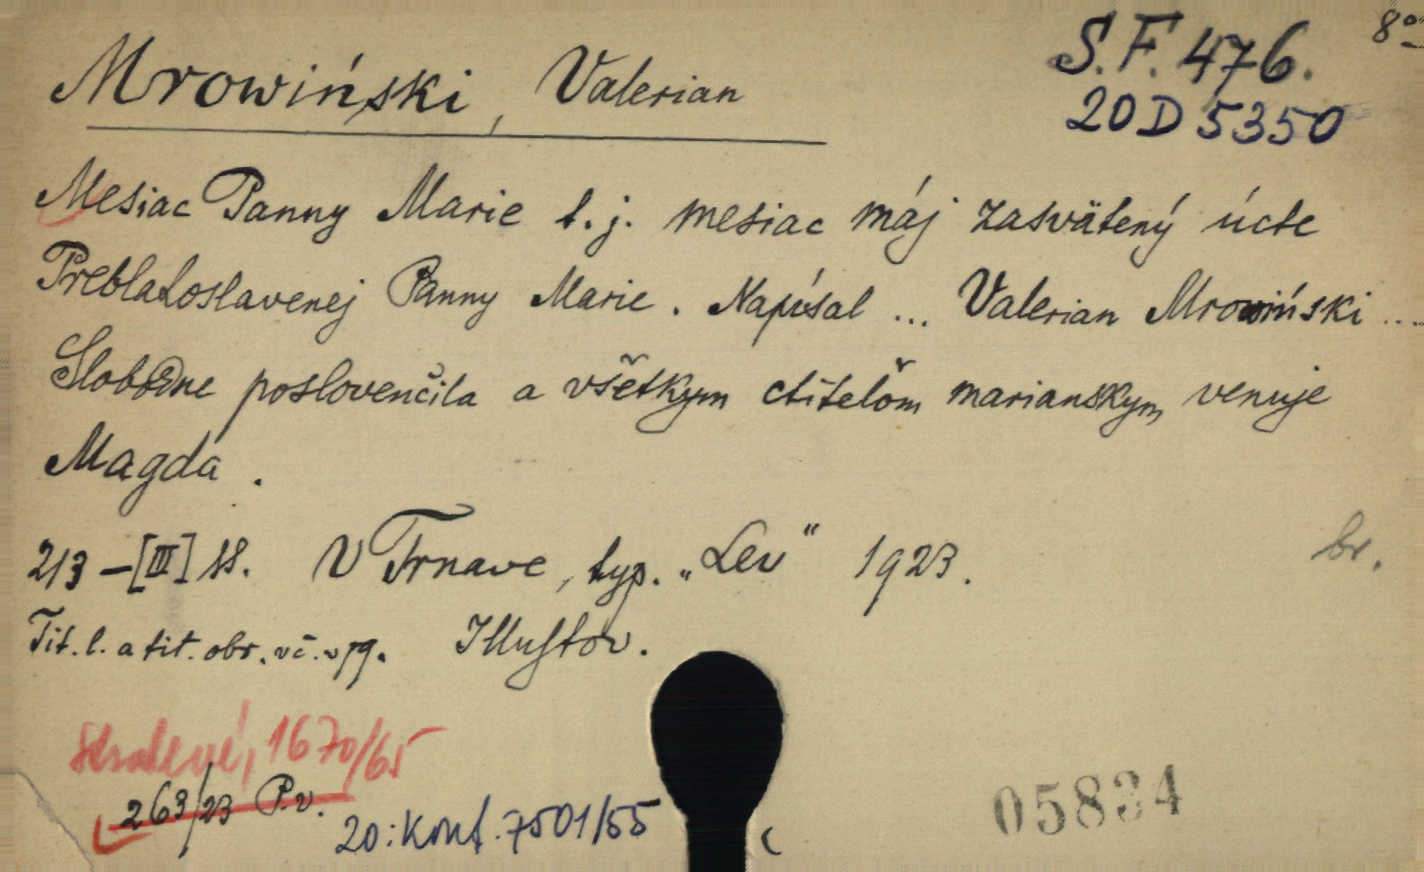 S.F. 476. 8°
Mrowiński, Valerian
20 D 5350
Mesiac Panny Marie t. j. mesiac máj zasvätený úcte
Preblahoslavenej Panny Marie. Napísal ... Valerian Mrowiński ...
Slobodne poslovenčila a všetkym ctitelom marianskym venuje
Magda.
213 - [III] 18. V Trnave, typ. „Lev" 1923. br.
Tit. l. a tit. obr. vč. v pg. Illustov.
1670/65
263/23 P.v.
20: Konf. 7501/55
05834